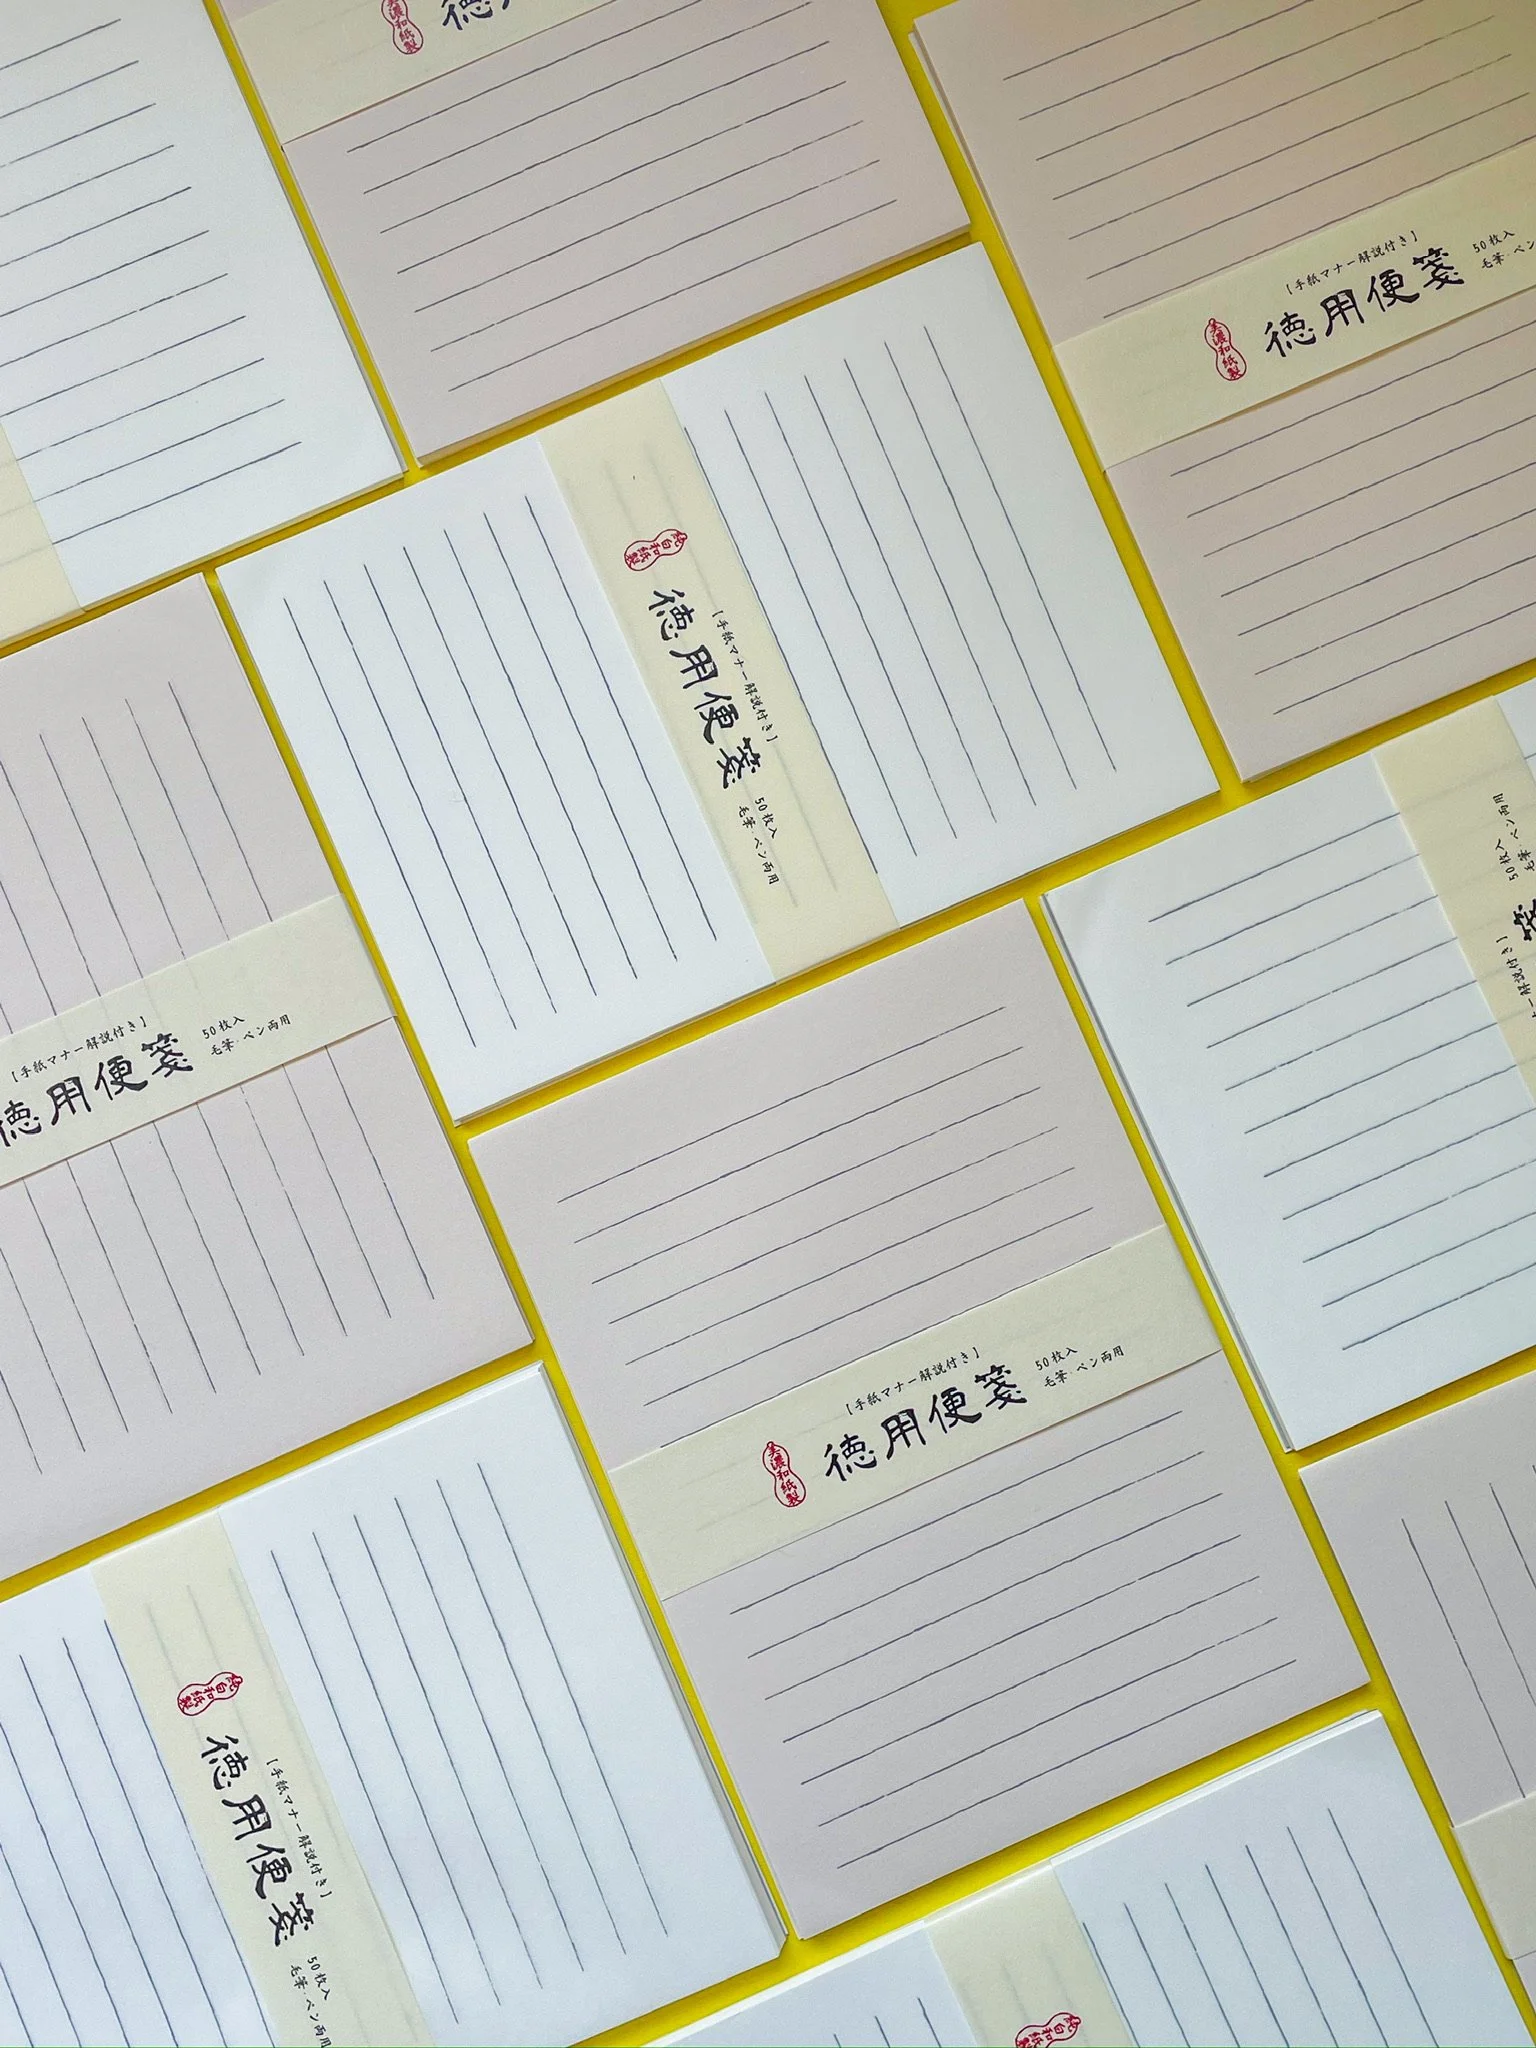 美濃和紙製
徳用
【手紙マナー解説付き】
50枚入
毛筆・ペン
徳用便箋
美濃和紙製
純白和紙製
【手紙マナー解説付き】
徳用便箋
50枚入
毛筆・ペン両用
【手紙マナー解説付き】
50枚入
毛筆・ペン両用
徳用便箋
50枚入
毛筆・ペン両用
箋
ー解説付き】
【手紙マナー解説付き】
50枚入
毛筆・ペン両用
徳用便箋
美濃和紙製
純白和紙製
【手紙マナー解説付き】
徳用便箋
50枚入
毛筆・ペン両用
純白和紙製